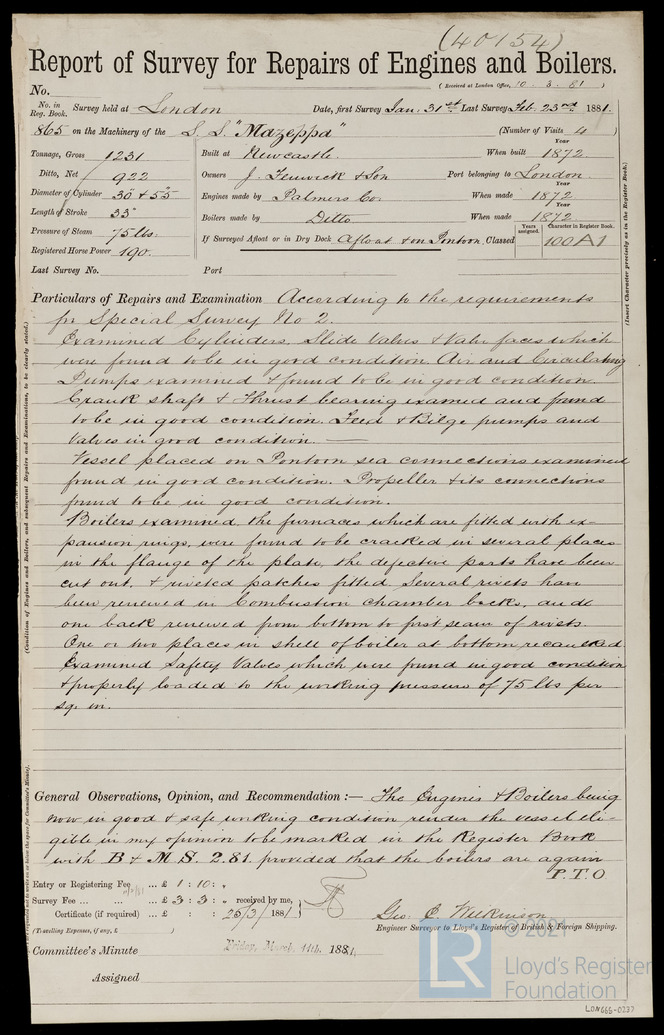 (40154)
Report of Survey for Repairs of Engines and Boilers.
(Received at London Office, 10. 3. 81)
No.
No. in Reg. Book. Survey held at London Date, first Survey Jan. 31st Last Survey Feb. 23rd 1881.
865 on the Machinery of the S. S. "Mazeppa" (Number of Visits 4)
Tonnage, Gross 1231
Ditto, Net 922
Diameter of Cylinder 30" & 55"
Length of Stroke 33"
Pressure of Steam 75 lbs.
Registered Horse Power 190.
Built at Newcastle. When built Year 1872.
Owners J. Fenwick & Son Port belonging to London.
Engines made by Palmers Co. When made Year 1872
Boilers made by Ditto When made Year 1872
If Surveyed Afloat or in Dry Dock Afloat & on Pontoon Classed Years assigned. Character in Register Book. 100 A1
Last Survey No. Port
(Insert Character precisely as in the Register Book.)
Particulars of Repairs and Examination According to the requirements
for Special Survey No 2.
Examined Cylinders, Slide Valves & Valve faces which
were found to be in good condition. Air and Circulating
Pumps examined & found to be in good condition.
Crank shaft & Thrust bearing examed and found
to be in good condition. Feed & Bilge pumps and
Valves in good condition.
Vessel placed on Pontoon sea connections examined
found in good condition. Propeller & its connections
found to be in good condition.
Boilers examined the furnaces which are fitted with ex-
pansion rings, were found to be cracked in several places
in the flange of the plate, the defective parts have been
cut out, & riveted patches fitted. Several rivets have
been renewed in Combustion chamber backs, and
one back renewed from bottom to first seam of rivets.
One or two places in shell of boiler at bottom recaulked
Examined Safety Valves which were found in good condition
& properly loaded to the working pressure of 75 lbs per
sq. in.
(Condition of Engines and Boilers, and subsequent Repairs and Examinations, to be clearly stated.)
General Observations, Opinion, and Recommendation :— The Engines & Boilers being
now in good & safe working condition render the vessel eli-
gible in my opinion to be marked in the Register Book
with B & M. S. 2.81. provided that the boilers are again
P.T.O
Entry or Registering Fee ... £ 1 : 10 :
Survey Fee ... £ 3 : 3 : received by me,
Certificate (if required) ... £ : : 25/2/1881
(Travelling Expenses, if any, £ )
Geo. C. Wilkinson
Engineer Surveyor to Lloyd's Register of British & Foreign Shipping.
Committee's Minute Friday, March, 11th. 1881.
Assigned
© 2021
LR
Lloyd's Register
Foundation
LON666-0237